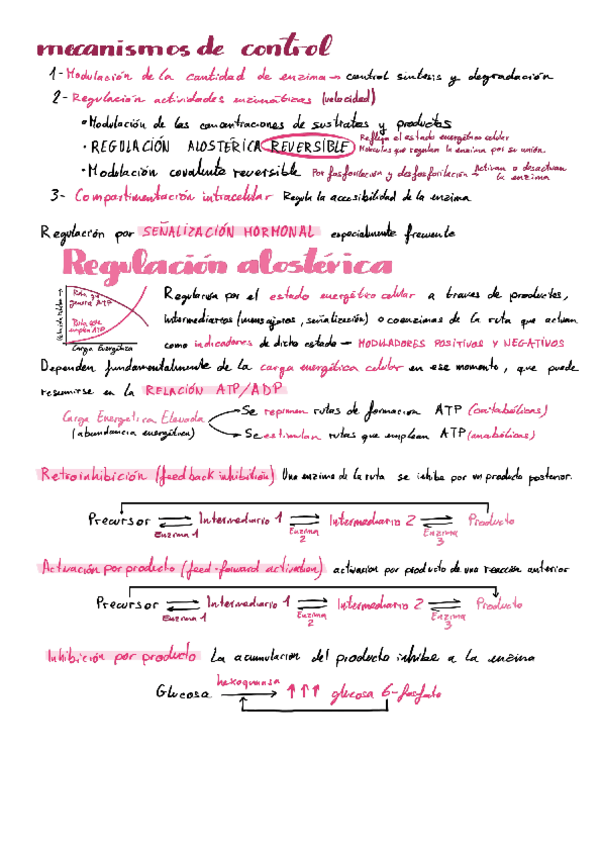 mecanismos de control
1- Modulación de la cantidad de enzima → control síntesis y degradación
2- Regulación actividades enzimáticas (velocidad)
• Modulación de las concentraciones de sustratos y productos
• REGULACIÓN ALOSTÉRICA REVERSIBLE Refleja el estado energético celular
Moléculas que regulan la enzima por su unión.
• Modulación covalente reversible Por fosforilación y desfosforilación → Activan o desactivan
la enzima
3- Compartimentación intracelular Regula la accesibilidad de la enzima
Regulación por SEÑALIZACIÓN HORMONAL especialmente frecuente
Regulación alostérica
Ruta q
genera ATP
Ruta que
emplea ATP
Carga Energética
Regulación por el estado energético celular a traves de productos,
intermediarios (mensajeros, señalización) o coenzimas de la ruta que actúan
como indicadores de dicho estado — MODULADORES POSITIVOS Y NEGATIVOS
Dependen fundamentalmente de la carga energética celular en ese momento, que puede
resumirse en la RELACIÓN ATP/ADP
Carga Energética Elevada
(abundancia energética)
Se reprimen rutas de formación ATP (catabólicas)
Se estimulan rutas que emplean ATP (anabólicas)
Retroinhibición (feedback inhibition) Una enzima de la ruta se inhibe por un producto posterior.
Precursor Intermediario 1 Intermediario 2 Producto
Enzima 1 Enzima 2 Enzima 3
Activación por producto (feed-forward activation) activación por producto de una reacción anterior
Precursor Intermediario 1 Intermediario 2 Producto
Enzima 1 Enzima 2 Enzima 3
Inhibición por producto La acumulación del producto inhibe a la enzima
hexoquinasa
Glucosa → ↑↑↑ glucosa 6-fosfato